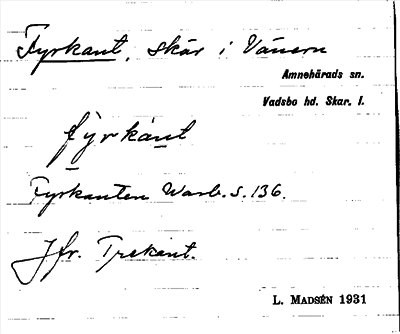 Fyrkant, skär i Vänern
Amnehärads sn.
Vadsbo hd. Skar. l.
fỳrkànt
Fyrkanten Warb. s. 136.
Jfr. Trekant.
L. MADSÉN 1931